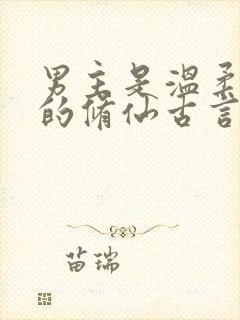 男主是温柔
的修仙古言
苗瑞